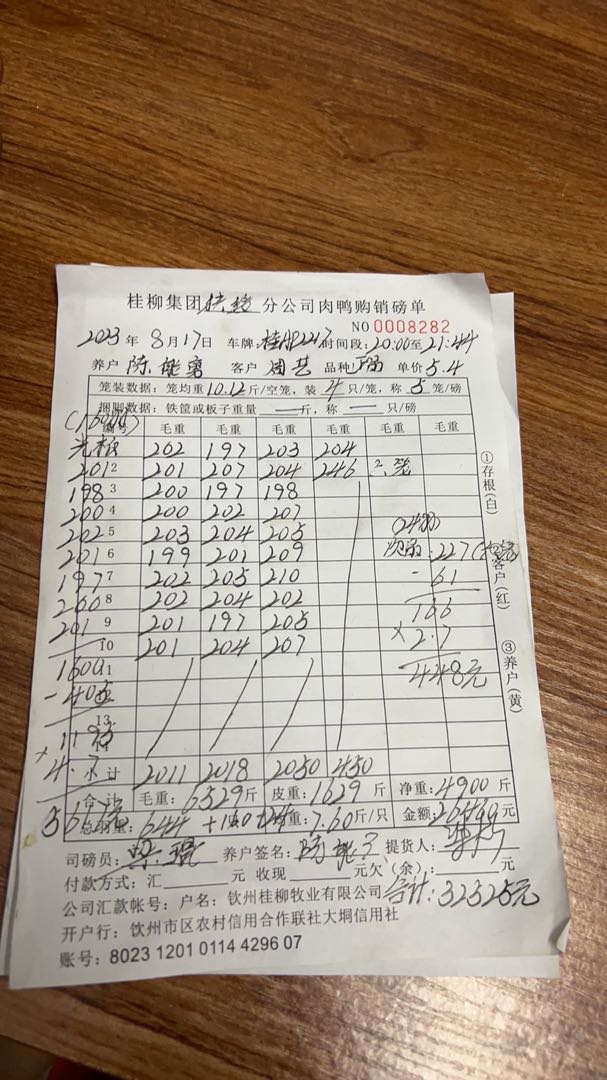 桂柳集团 分公司肉鸭购销磅单
NO 0008282
2023 年 8 月 17 日 车牌: 时间段: 20:00 至 21:44
养户 陈能勇 客户 周艺 品种 单价 5.4
笼装数据: 笼均重 10.12 斤/空笼, 装 4 只/笼, 称 5 笼/磅
捆脚数据: 铁筐或板子重量 — 斤, 称 — 只/磅
编号 毛重 毛重 毛重 毛重 毛重 毛重
202 197 203 204
201 2 201 207 204 246 六笼
198 3 200 197 198
200 4 200 202 207
202 5 203 204 205
201 6 199 201 209 227
197 7 202 205 210 -61
200 8 202 204 202 166
201 9 201 197 205 ×2.7
10 201 204 207 448元
13
×
4.7 小计 2011 2018 2050 450
合计 毛重: 6529 斤 皮重: 1629 斤 净重: 4900 斤
重: 7.60 斤/只 金额: 26460 元
司磅员: 养户签名: 提货人:
付款方式: 汇 元 收现 元欠(余): 元
公司汇款帐号: 户名: 钦州桂柳牧业有限公司 合计: 32325元
开户行: 钦州市区农村信用合作联社大垌信用社
账号: 8023 1201 0114 4296 07
①存根(白)
②客户(红)
③养户(黄)